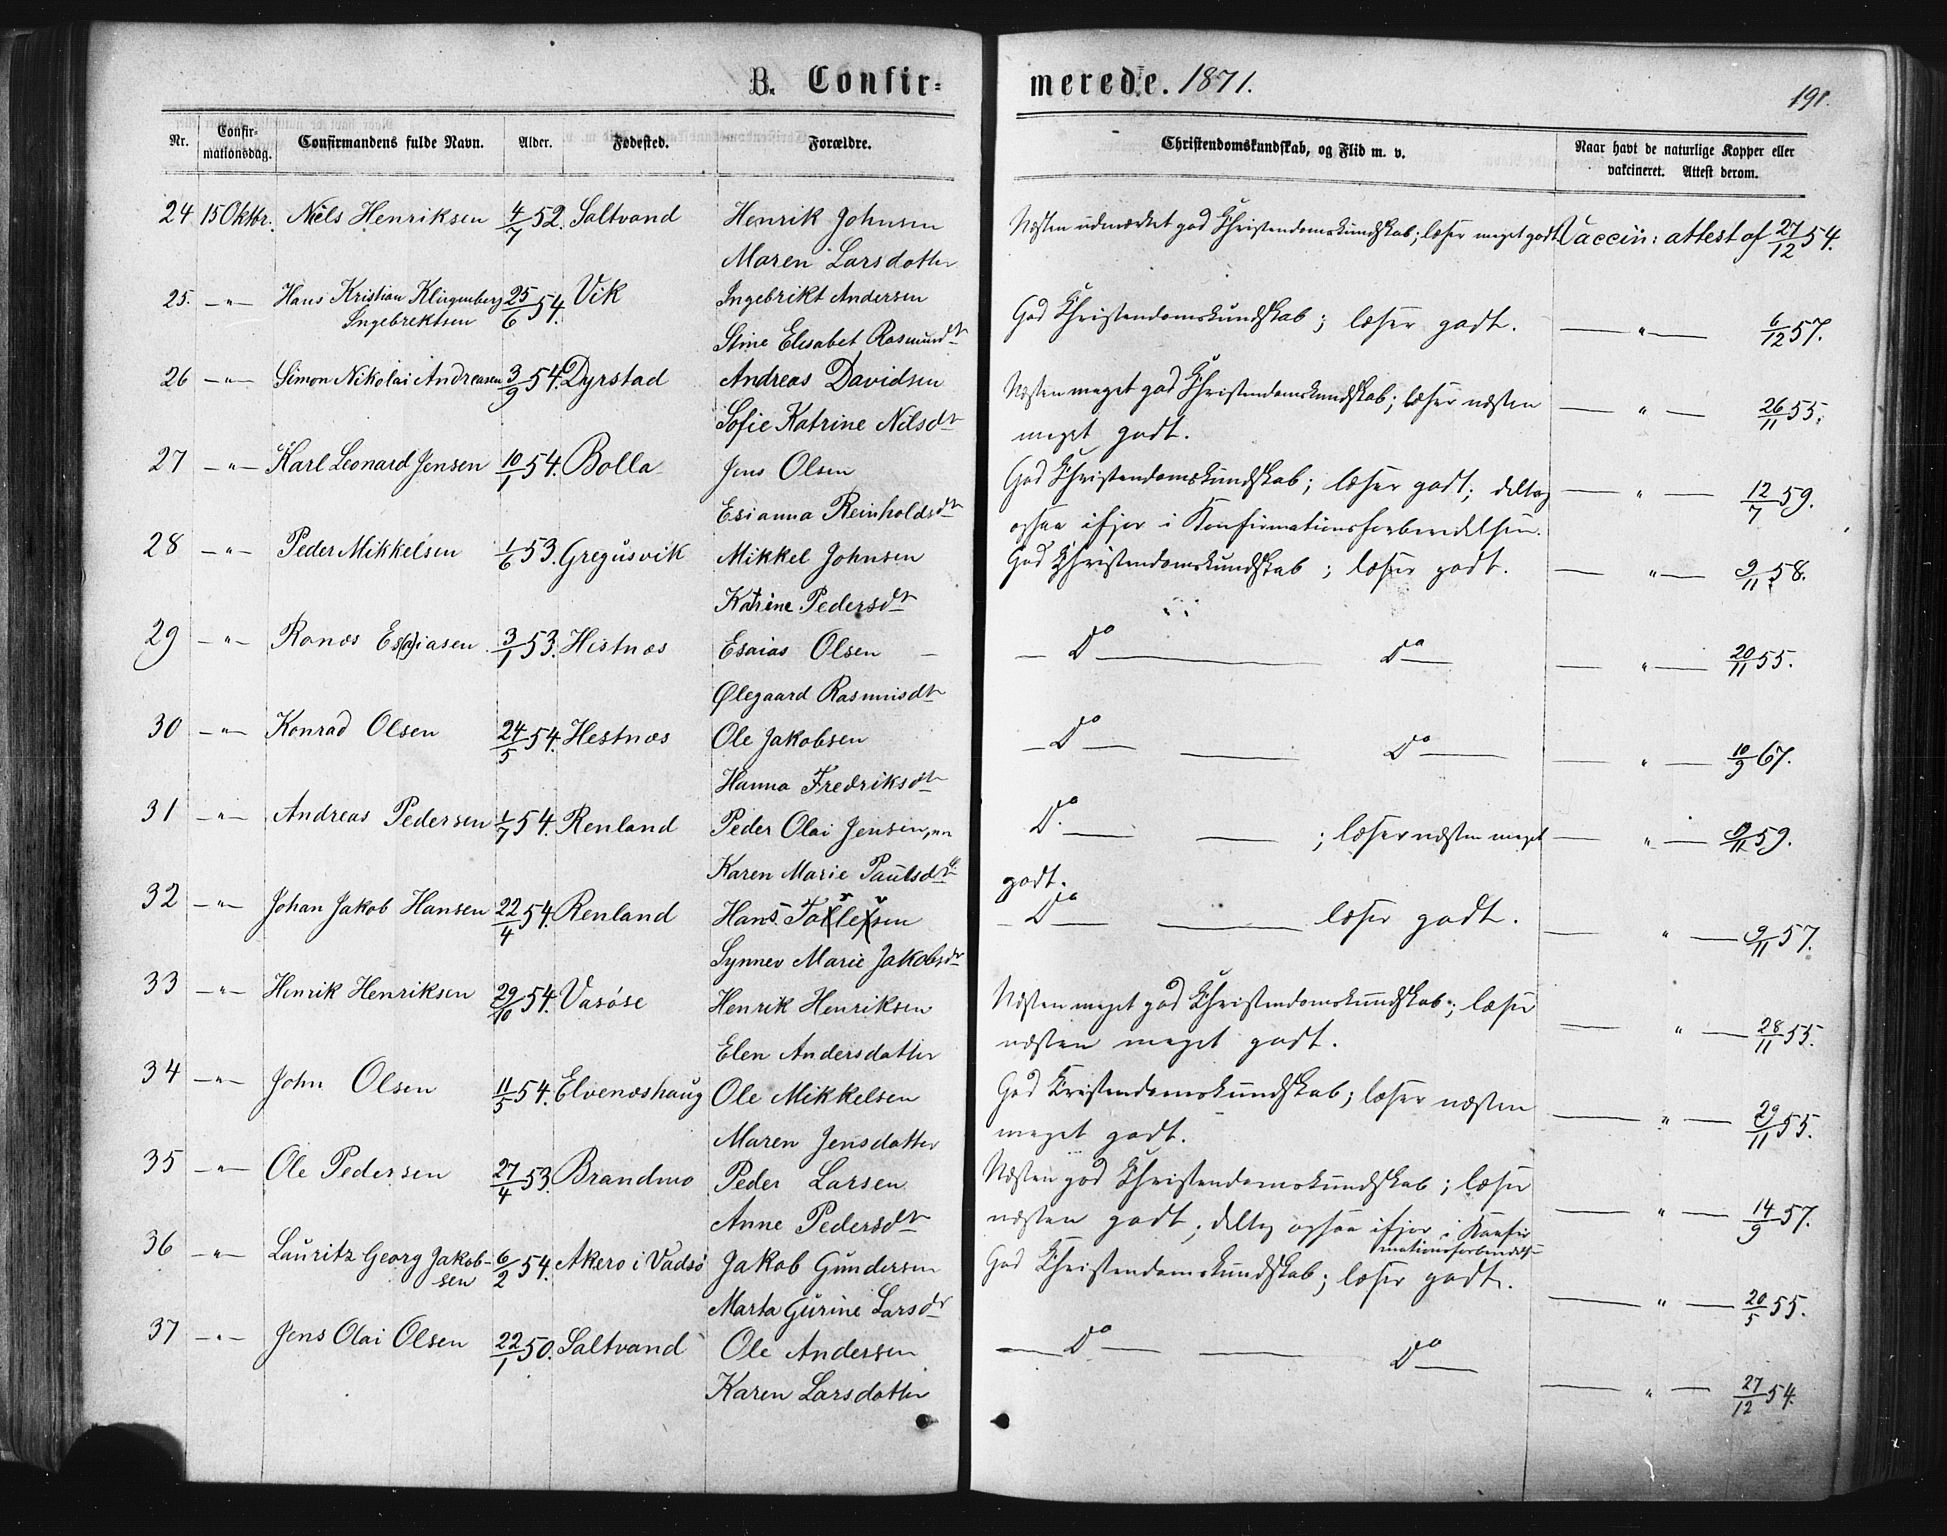 B. Confir=
merede. 1871.
191.
Nr. Confir=mationsdag. Confirmandens fulde Navn. Alder. Fødested. Forældre. Christendomskundskab, og Flid m. v. Naar havt de naturlige Kopper eller vakcineret. Attest derom.
24 15 Oktbr. Niels Henriksen 4/7 52. Saltvand Henrik Johnsen Næsten udmærket god Christendomskundskab; læser meget godt. Vaccin: attest af 27/12 54.
Maren Larsdatter
25. —"— Hans Kristian Klingenberg 25/6 54. Vik Ingebrikt Andersen God Christendomskundskab; læser godt. —"— 6/12 57.
Ingebrektsen Stine Elisabet Rasmusdt
26 —"— Simon Nikolai Andreasen 3/9 54. Dyrstad Andreas Davidsen Næsten meget god Christendomskundskab; læser næsten —"— 26/11 55.
Sofie Katrine Nilsdt meget godt.
27 —"— Karl Leonard Jensen 10/1 54. Bolla Jens Olsen God Christendomskundskab; læser godt; deltog —"— 12/7 59.
Esianna Reinholdsdt ogsaa ifjor i Konfirmationsforberedelsen.
28 —"— Peder Mikkelsen 1/6 53. Gregusvik Mikkel Johnsen God Christendomskundskab; læser godt. —"— 9/11 58.
Katrine Pedersdt
29 —"— Ranæs Es(a)iasen 3/1 53. Histnæs Esaias Olsen — Do — Do — —"— 20/11 55.
Ølegaard Rasmusdt
30 —"— Konrad Olsen 24/5 54. Hestnæs Ole Jakobsen — Do — — Do — —"— 10/9 67.
Hanna Fredriksdt
31 —"— Andreas Pedersen 1/7 54. Renland Peder Olai Jensen Do — — ; læser næsten meget —"— 9/11 59.
Karen Marie Paulsdt godt.
32 —"— Johan Jakob Hansen 22/4 54. Renland Hans — Do — — læser godt. —"— 9/11 57.
Synnev Marie Jakobsdr
33 —"— Henrik Henriksen 29/10 54. Varøse Henrik Henriksen Næsten meget god Christendomskundskab; læser —"— 28/11 55.
Elen Andersdatter næsten meget godt.
34 —"— John Olsen 11/5 54. Elvenæshaug Ole Mikkelsen God Kristendomskundskab; læser næsten —"— 29/11 55.
Maren Jensdatter meget godt.
35 —"— Ole Pedersen 27/4 53. Brandmo Peder Larsen Næsten god Christendomskundskab; læser —"— 14/9 57.
Anne Pedersdt næsten godt; deltog ogsaa ifjor i Konfir
mationsforberedelse
36 —"— Lauritz Georg Jakob- 6/2 54. Akero i Vadsö Jakob Gundersen God Christendomskundskab; læser godt. —"— 20/5 55.
sen Marta Gurine Larsdr
37 —"— Jens Olai Olsen 22/1 50. Saltvand Ole Andersen — Do — — Do — —"— 27/12 54.
Karen Larsdatter